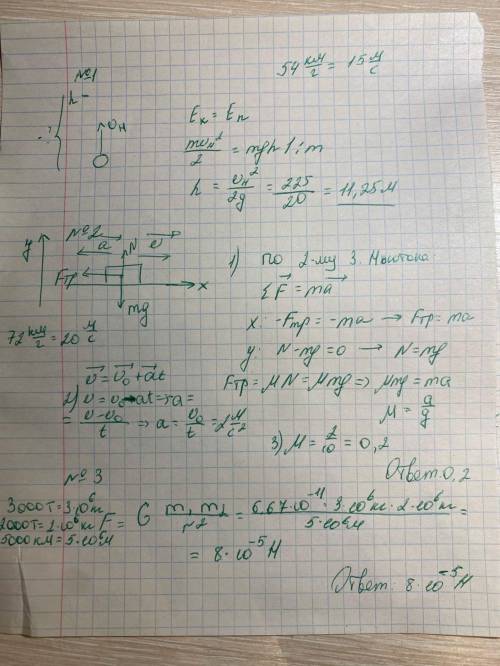 №1
54 км/г = 15 м/с
h -
?
υн
Eк = Eп
mυн²/2 = mgh 1:m
h = υн²/2g = 225/20 = 11,25 м
№2
y
a
N
υ
Fтр
x
mg
72 км/г = 20 м/с
1) По 2-му З. Ньютона:
ΣF = ma
x: -Fтр = -ma → Fтр = ma
y: N - mg = 0 → N = mg
Fтр = MN = Mmg => Mmg = ma
M = a/g
υ = υ₀ + at
2) υ = υ₀ - at => a =
= υ - υ₀/t => a = υ₀/t = 2 м/с²
3) M = 2/10 = 0,2
Ответ: 0,2
№3
3000т = 3·10⁶ кг
2000т = 2·10⁶ кг
5000 км = 5·10⁶ м
F = G m₁ m₂/r² = 6,67·10⁻¹¹ · 3·10⁶ кг · 2·10⁶ кг/5·10⁶ м =
= 8·10⁻⁵ Н
Ответ: 8·10⁻⁵ Н